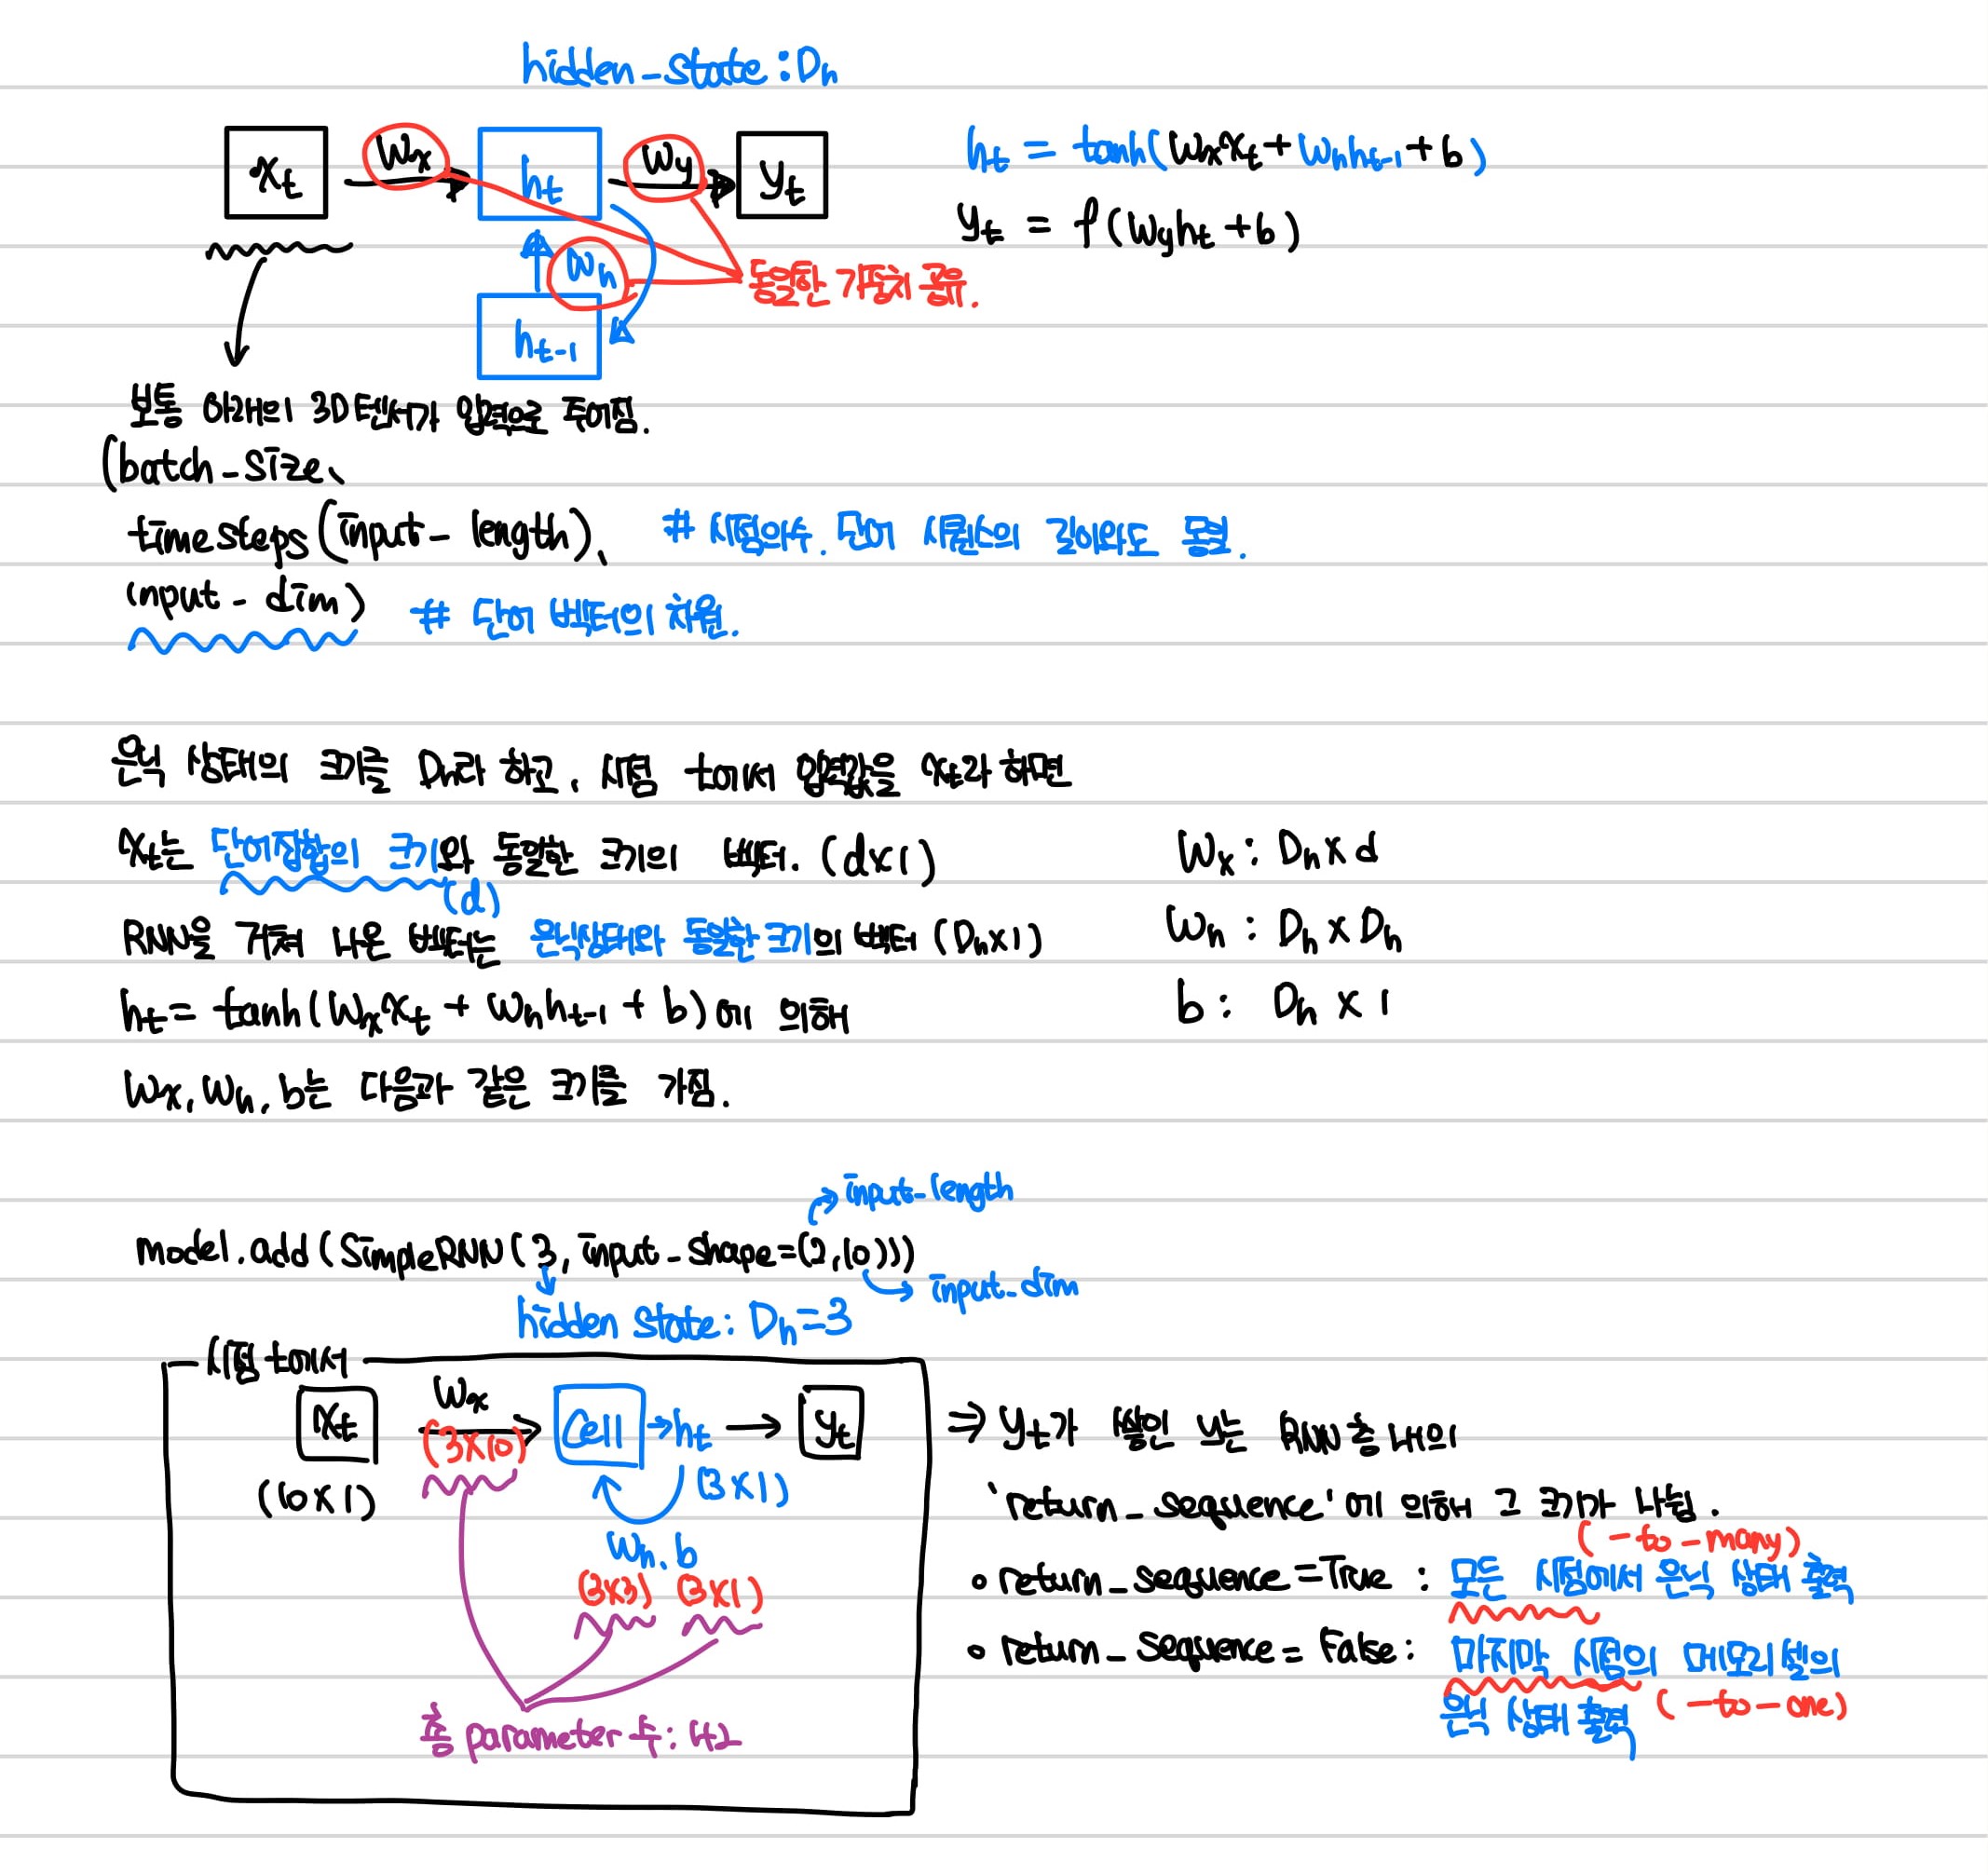 hidden_state : Dh
xt Wx ht Wy yt
ht = tanh(Wxxt + Whht-1 + b)
yt = f(Wyht + b)
Wh
동일한 가중치 공유.
ht-1
보통 아래의 3D텐서가 입력으로 주어짐.
(batch_size,
timesteps(input_length), # 시점의수. 단어 시퀀스의 길이와도 동일.
input_dim) # 단어 벡터의 차원.
은닉 상태의 크기를 Dh라 하고, 시점 t에서 입력값을 xt라 하면
xt는 단어집합의 크기와 동일한 크기의 벡터. (d×1)
(d)
RNN을 거쳐 나온 벡터는 은닉상태와 동일한 크기의 벡터 (Dh×1)
ht = tanh(Wxxt + Whht-1 + b)에 의해
Wx, Wh, b는 다음과 같은 크기를 가짐.
Wx : Dh×d
Wh : Dh×Dh
b : Dh × 1
input_length
model.add(SimpleRNN(3, input_shape=(2,10)))
input_dim
hidden state : Dh=3
시점 t에서
xt Wx Cell ht yt
(3×10)
(10×1) (3×1)
Wh, b
(3×3) (3×1)
총 parameter 수 : 42
⇒ yt가 쌓인 y는 RNN층 내의
'return_sequence'에 의해 그 크기가 나뉨.
(-to-many)
◦ return_sequence=True : 모든 시점에서 은닉 상태 출력
◦ return_sequence = False : 마지막 시점의 메모리셀의
은닉 상태 출력 (-to-one)